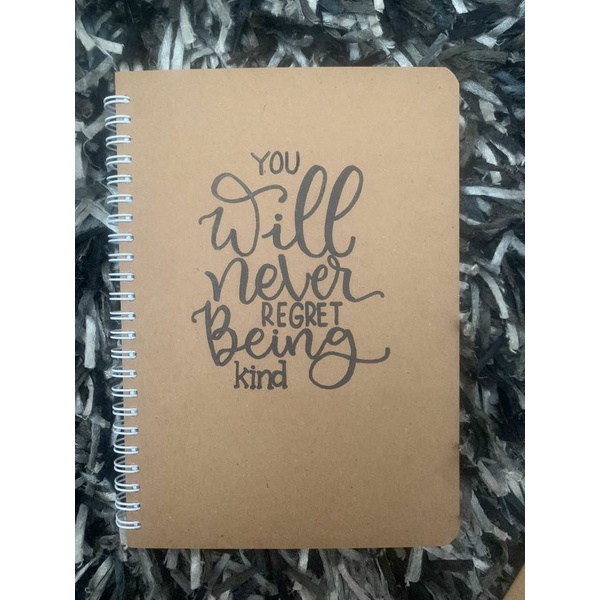 YOU
Will
never
REGRET
Being
kind